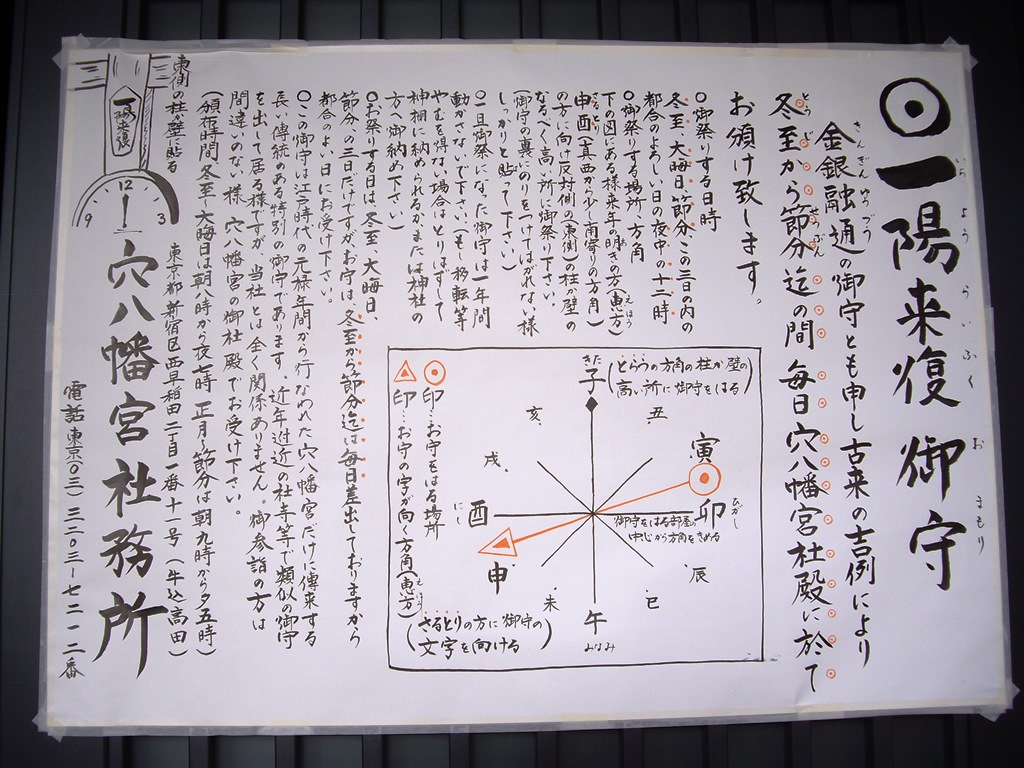 一陽来復 御守
いちようらいふく おまもり
金銀融通の御守とも申し古来の吉例により
きんぎんゆうづう
冬至から節分迄の間 毎日 穴八幡宮社殿に於て
とうじ せつぶん
お頒け致します。
○御祭りする日時
冬至、大晦日、節分、この三日の内の
都合のよろしい日の夜中の十二時
○御祭りする場所、方角
下の図にある様来年の明きの方(恵方)
えほう
申酉(真西から少し南寄りの方角)
さるとり
の方に向け反対側の(東側)の柱か壁の
なるべく高い所に御祭り下さい。
(御守の裏にのりをつけてはがれない様
しっかりと貼って下さい)
○一旦御祭になった御守は一年間
動かさないで下さい(もし移転等
やむを得ない場合はとりはずして
神棚に納められるかまたは神社の
方へ御納め下さい)
○お祭りする日は、冬至、大晦日、
節分の三日だけですが、お守は、冬至から節分迄は毎日差出しておりますから
都合のよい日にお受け下さい。
○この御守は江戸時代の元禄年間から行なわれた穴八幡宮だけに傳来する
長い傳統のある特別の御守であります、近年附近の社寺等で類似の御守
を出して居る様ですが、当社とは全く関係ありません。御参詣の方は
間違いのない様 穴八幡宮の御社殿でお受け下さい。
(頒布時間 冬至〜大晦日は朝八時から夜七時 正月〜節分は朝九時から夕五時)
東京都新宿区西早稲田二丁目一番十一号(牛込高田)
穴八幡宮社務所
電話 東京(〇三)三二〇三ー七二一二番
東側の柱か壁に貼る
一陽来復
12
9
3
(とらうの方角の柱か壁の
高い所に御守をはる)
きた
子
丑
寅
卯
ひがし
辰
巳
午
みなみ
未
申
酉
にし
戌
亥
御守をはる部屋の
中心から方角をきめる
印…お守をはる場所
印…お守の字が向く方角(恵方)
えほう
(さるとりの方に御守の
文字を向ける)